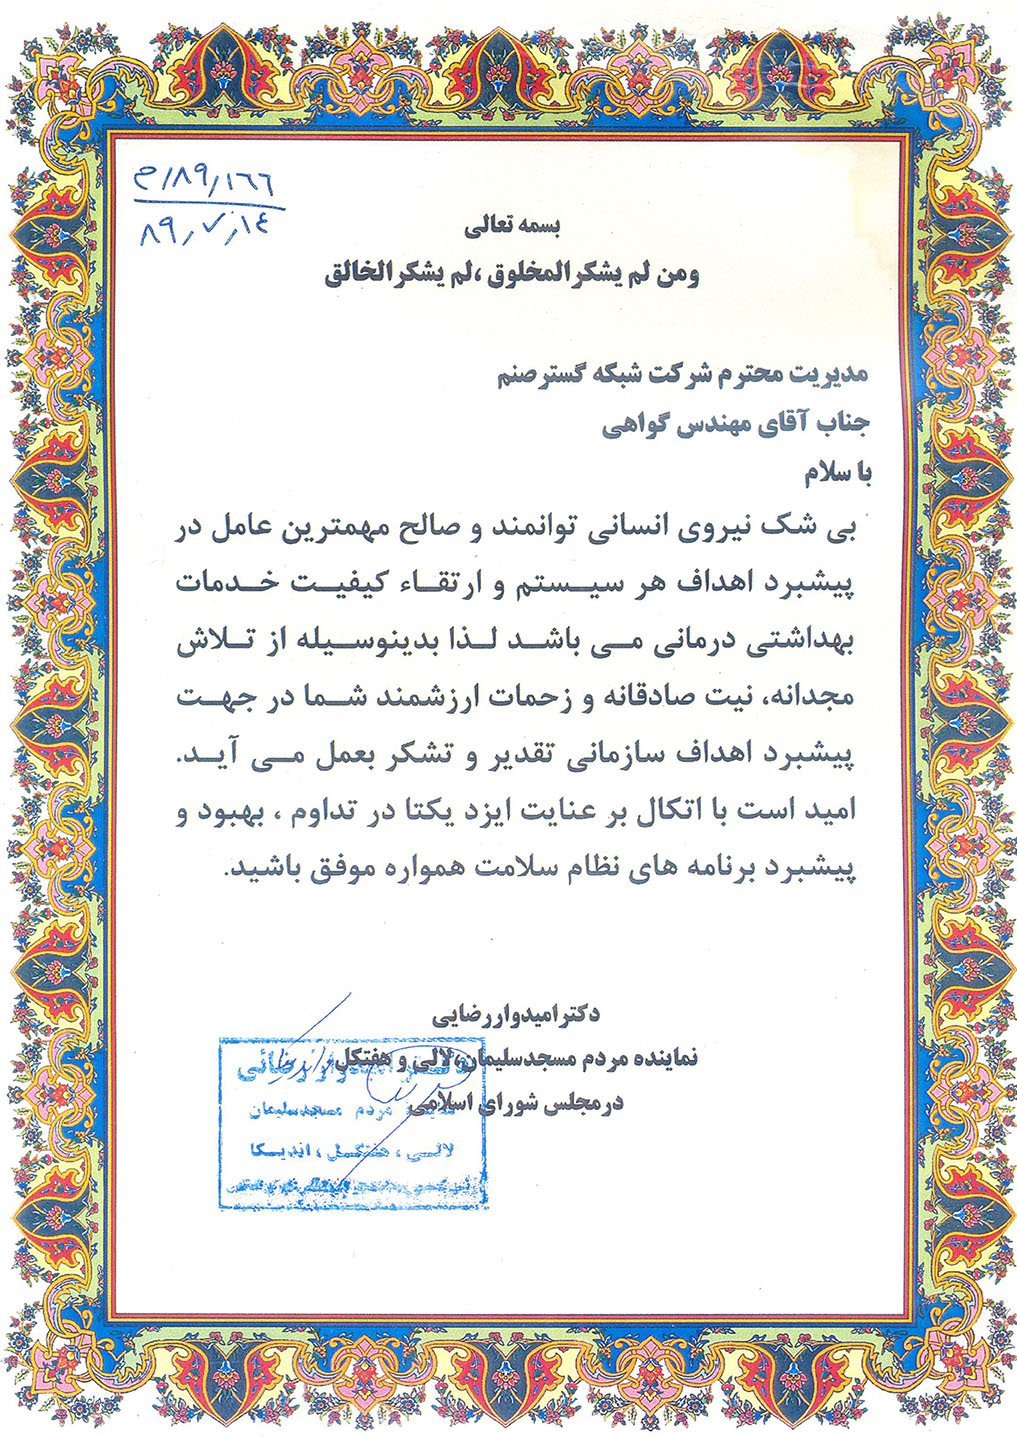 ۸۹٫۱۶۶/م
۸۹٫۷٫۱۴
بسمه تعالی
ومن لم یشکرالمخلوق ،لم یشکرالخالق
مدیریت محترم شرکت شبکه گسترصنم
جناب آقای مهندس گواهی
با سلام
بی شک نیروی انسانی توانمند و صالح مهمترین عامل در
پیشبرد اهداف هر سیستم و ارتقاء کیفیت خدمات
بهداشتی درمانی می باشد لذا بدینوسیله از تلاش
مجدانه، نیت صادقانه و زحمات ارزشمند شما در جهت
پیشبرد اهداف سازمانی تقدیر و تشکر بعمل می آید.
امید است با اتکال بر عنایت ایزد یکتا در تداوم ، بهبود و
پیشبرد برنامه های نظام سلامت همواره موفق باشید.
دکترامیدواررضایی
نماینده مردم مسجدسلیمان،لالی و هفتکل
درمجلس شورای اسلامی
دکتر امیدوار رضائی
نماینده مردم مسجدسلیمان
لالی ، هفتکل ، اندیکا